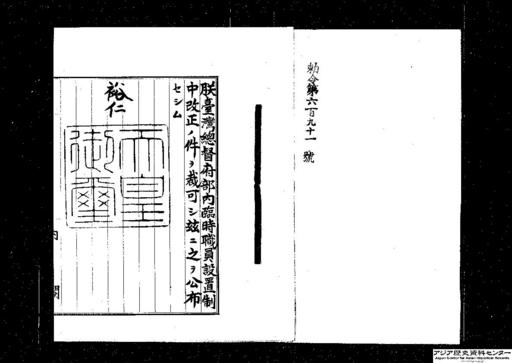 勅令第六百九十一號
朕臺灣總督府部內臨時職員設置制
中改正ノ件ヲ裁可シ玆ニ之ヲ公布
セシム
裕仁
天皇
御璽
內閣
アジア歴史資料センター
Japan Center for Asian Historical Records